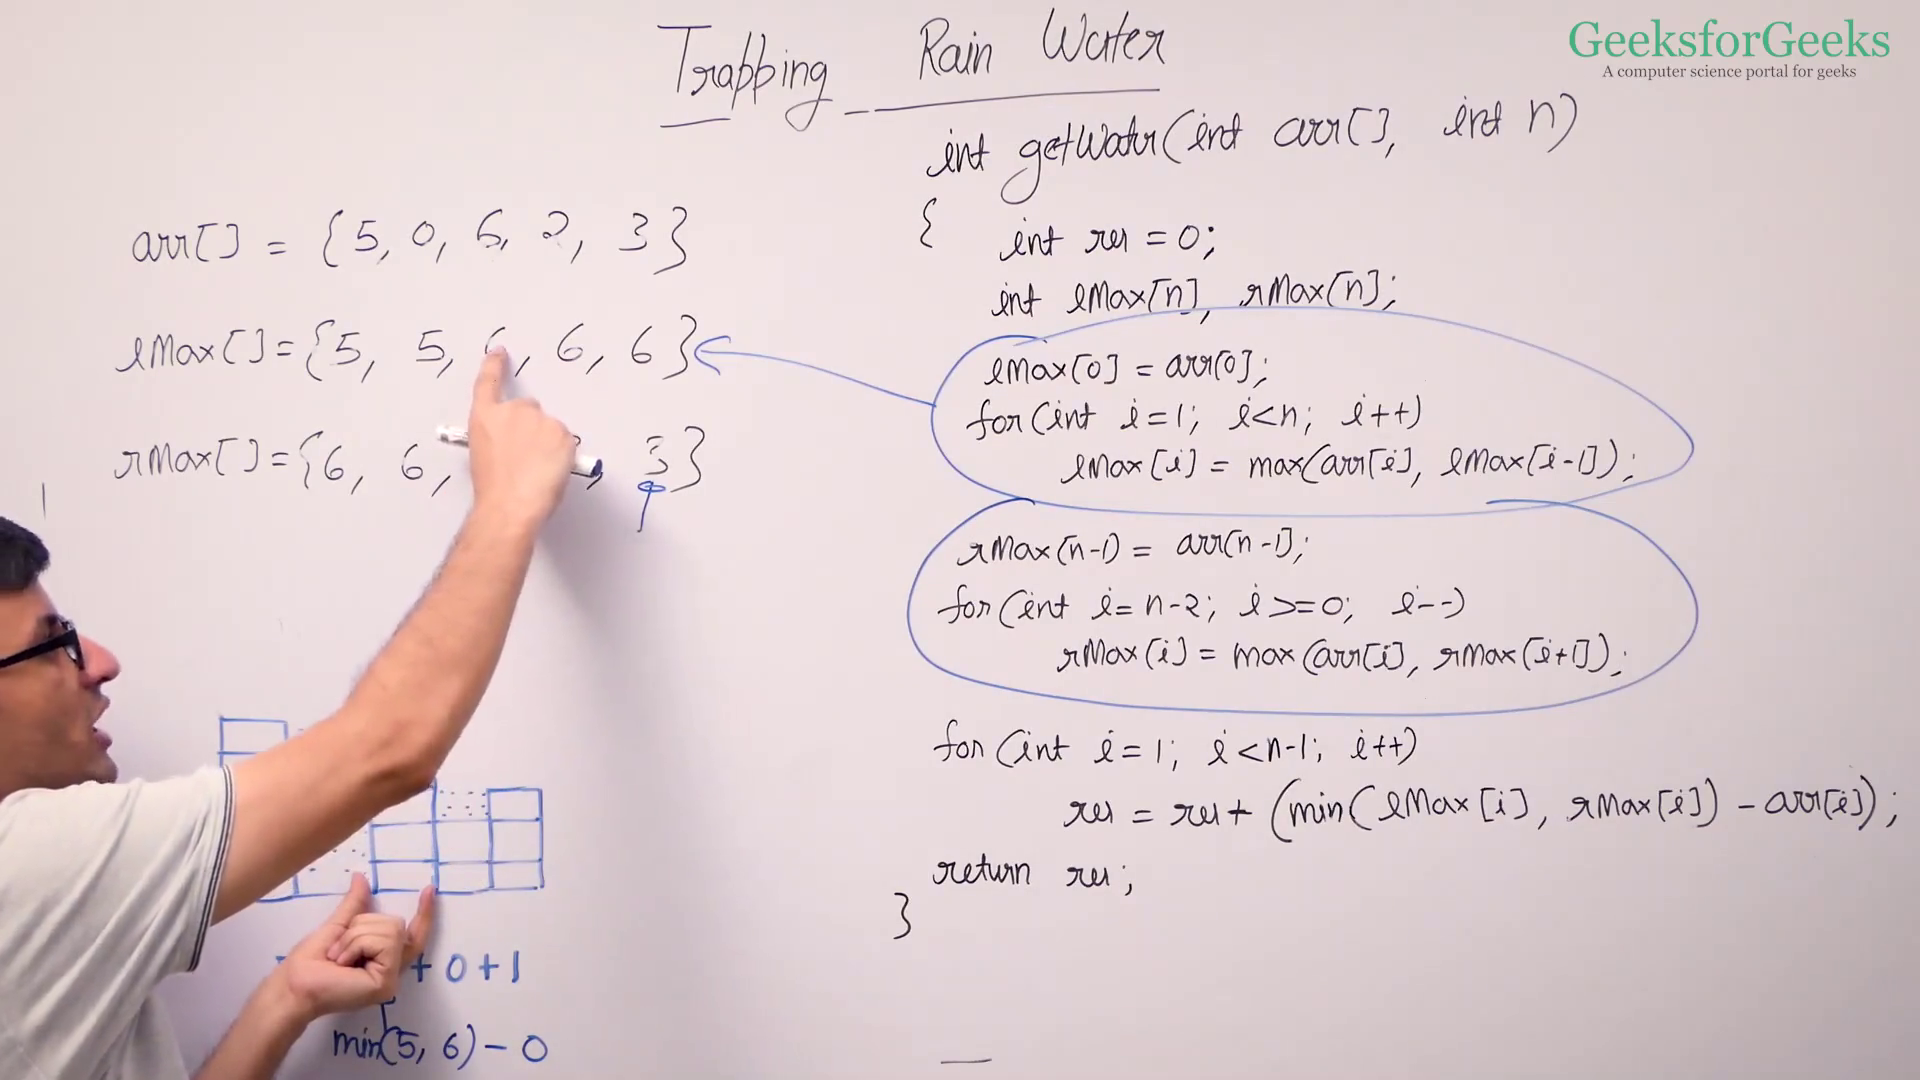 Trapping Rain Water
GeeksforGeeks
A computer science portal for geeks
arr[] = {5, 0, 6, 2, 3}
lMax[] = {5, 5, 6, 6, 6}
rMax[] = {6, 6, 3}
+ 0 + 1
min(5, 6) - 0
int getWater(int arr[], int n)
{
int res = 0;
int lMax[n], rMax[n];
lMax[0] = arr[0];
for(int i=1; i<n; i++)
lMax[i] = max(arr[i], lMax[i-1]);
rMax[n-1] = arr[n-1];
for(int i=n-2; i>=0; i--)
rMax[i] = max(arr[i], rMax[i+1]);
for(int i=1; i<n-1; i++)
res = res + (min(lMax[i], rMax[i]) - arr[i]);
return res;
}